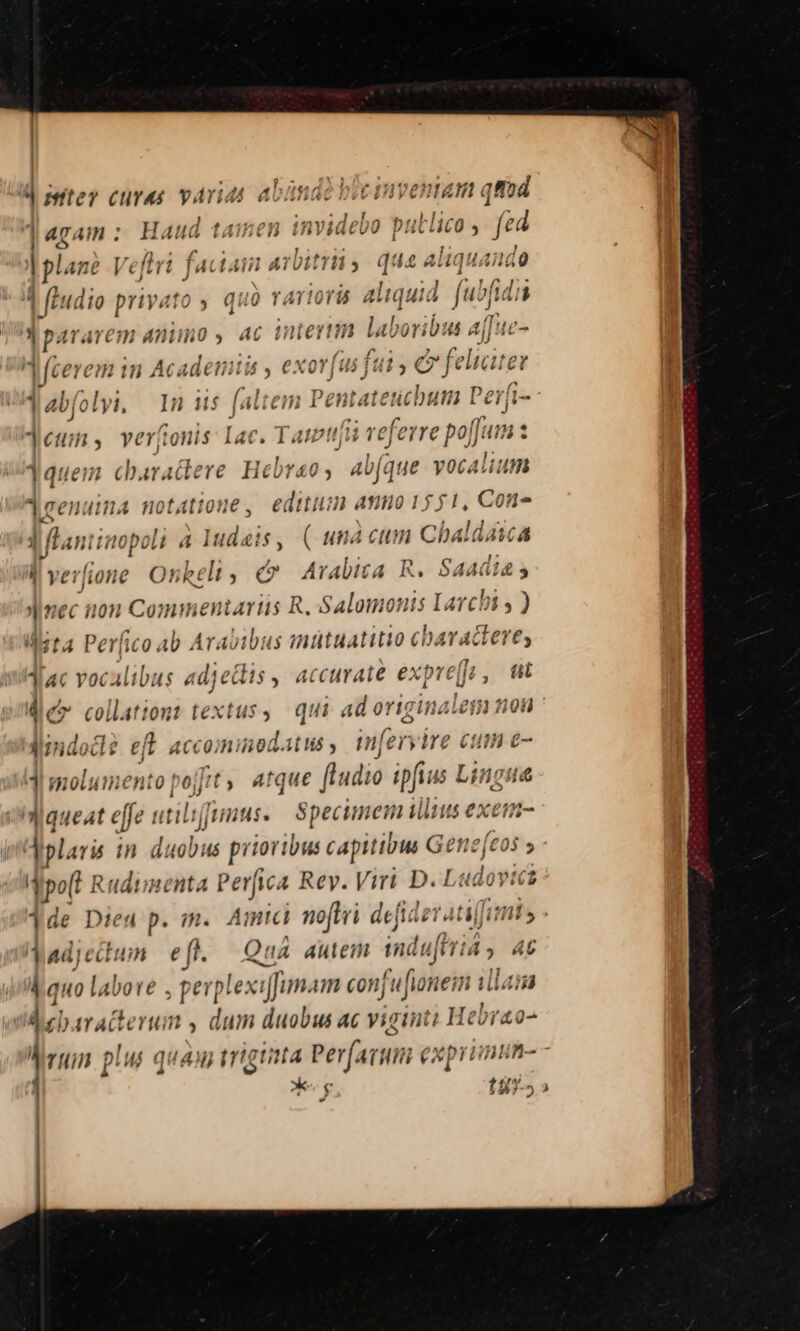 inter curas varias abundè hîc inveniam quod
agam: Haud tamen invidebo publico, ſed
planè Veſtri faciam arbitrii, quæ aliquando
ſtudio privato, quò rarioris aliquid ſubſidii
pararem animo, ac interim laboribus aſſue-
ſcerem in Academiis, exorſus fui, & feliciter
abſolvi. In iis ſaltem Pentateuchum Perſi-
cum, verſionis Iac. Tawuſii referre poſſum:
quem charactere Hebræo, abſque vocalium
genuina notatione, editum anno 1551, Con-
ſtantinopoli à Iudæis, (unà cum Chaldaica
verſione Onkeli, & Arabica R. Saadiæ,
nec non Commentariis R. Salomonis Iarchi,)
ita Perſico ab Arabibus mutuatitio charactere,
ac vocalibus adjectis, accuratè expreſſi, ut
& collationi textus, qui ad originalem non
indoctè eſt accommodatus, inſervire cum e-
molumento poſſit, atque ſtudio ipſius Linguæ
queat eſſe utiliſſimus. Specimem illius exem-
plaris in duobus prioribus capitibus Geneſeos,
poſt Rudimenta Perſica Rev. Viri D. Ludovici
de Dieu p. m. Amici noſtri deſideratiſſimi,
adjectum eſt. Quâ autem induſtriâ, ac
quo labore, perplexiſſimam confuſionem illam
characterum, dum duobus ac viginti Hebræo-
rum plus quàm triginta Perſarum exprimun-
* 5. tur,